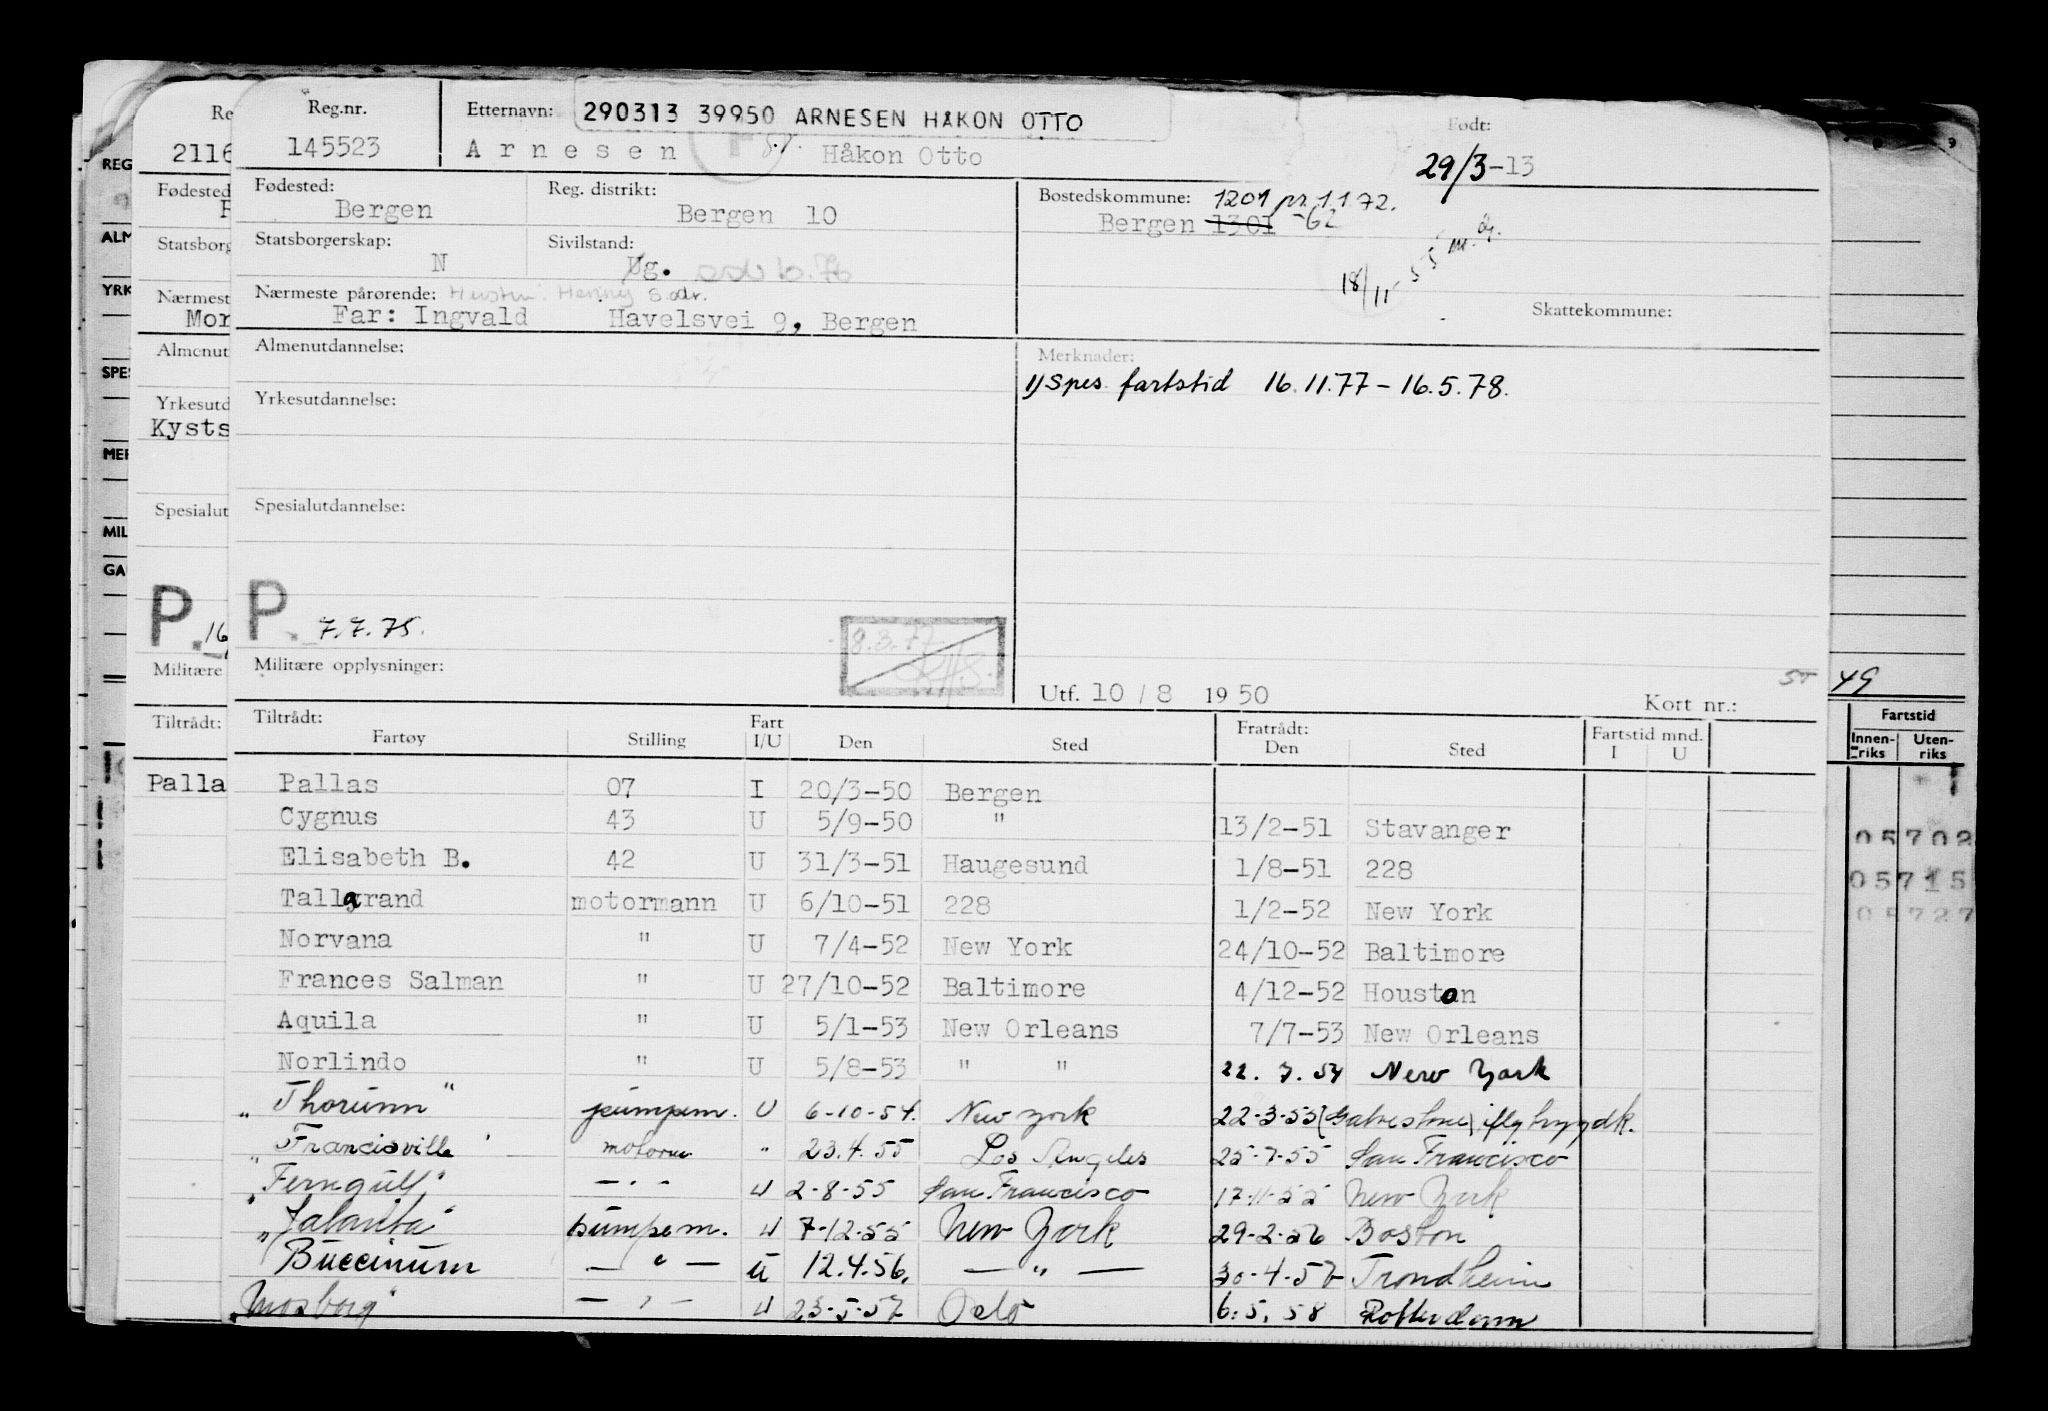 Reg.nr.
145523
Etternavn: 290313 39950 ARNESEN HÅKON OTTO
Arnesen Håkon Otto
Født:
29/3-13
Fødested:
Bergen
Reg. distrikt:
Bergen 10
Bostedskommune: 1201 pr. 1.1.72.
Bergen 1301 -62
Statsborgerskap:
N
Sivilstand:
Ug.
18/11-55
Nærmeste pårørende:
Far: Ingvald Havelsvei 9, Bergen
Skattekommune:
Almenutdannelse:
Merknader:
1) Spes. fartstid 16.11.77 - 16.5.78.
Yrkesutdannelse:
Spesialutdannelse:
P. 7.7.75.
8.3.77
Militære opplysninger:
Utf. 10 / 8 19 50
Kort nr.:
Tiltrådt:
Fartøy Stilling Fart I/U Den Sted Fratrådt: Den Sted Fartstid mnd. I U
Pallas 07 I 20/3-50 Bergen
Cygnus 43 U 5/9-50 " 13/2-51 Stavanger
Elisabeth B. 42 U 31/3-51 Haugesund 1/8-51 228
Tallgrand motormann U 6/10-51 228 1/2-52 New York
Norvana " U 7/4-52 New York 24/10-52 Baltimore
Frances Salman " U 27/10-52 Baltimore 4/12-52 Houston
Aquila " U 5/1-53 New Orleans 7/7-53 New Orleans
Norlindo " U 5/8-53 " " 22.7.54 New York
"Thorunn" pumpem. U 6-10-54. New York 22-3-55 (Galvestone)
"Francisville" motorm " 23.4.55 Los Angeles 25-7-55 San Francisco
"Ferngulf" -"- U 2-8-55 San Francisco 17-11-55 New York
"Jalanta" pumpem. U 7-12-55 New York 29-2-56 Boston
Buccinum -"- U 12.4.56. -"- 30-4-57 Trondheim
"Mosborg" -"- U 23-5-57 Oslo 6.5.58 Rotterdam
Re
2116
Fødested
Statsborg
Nærmest
Mor
Almenut
Yrkesutd
Kysts
Spesialut
P. 16
Militære
Tiltrådt:
Palla
REG
ALM
YRK
SPES
MER
MIL
GA
9
49
Fartstid
Innen-riks Uten-riks
05702
05715
05727